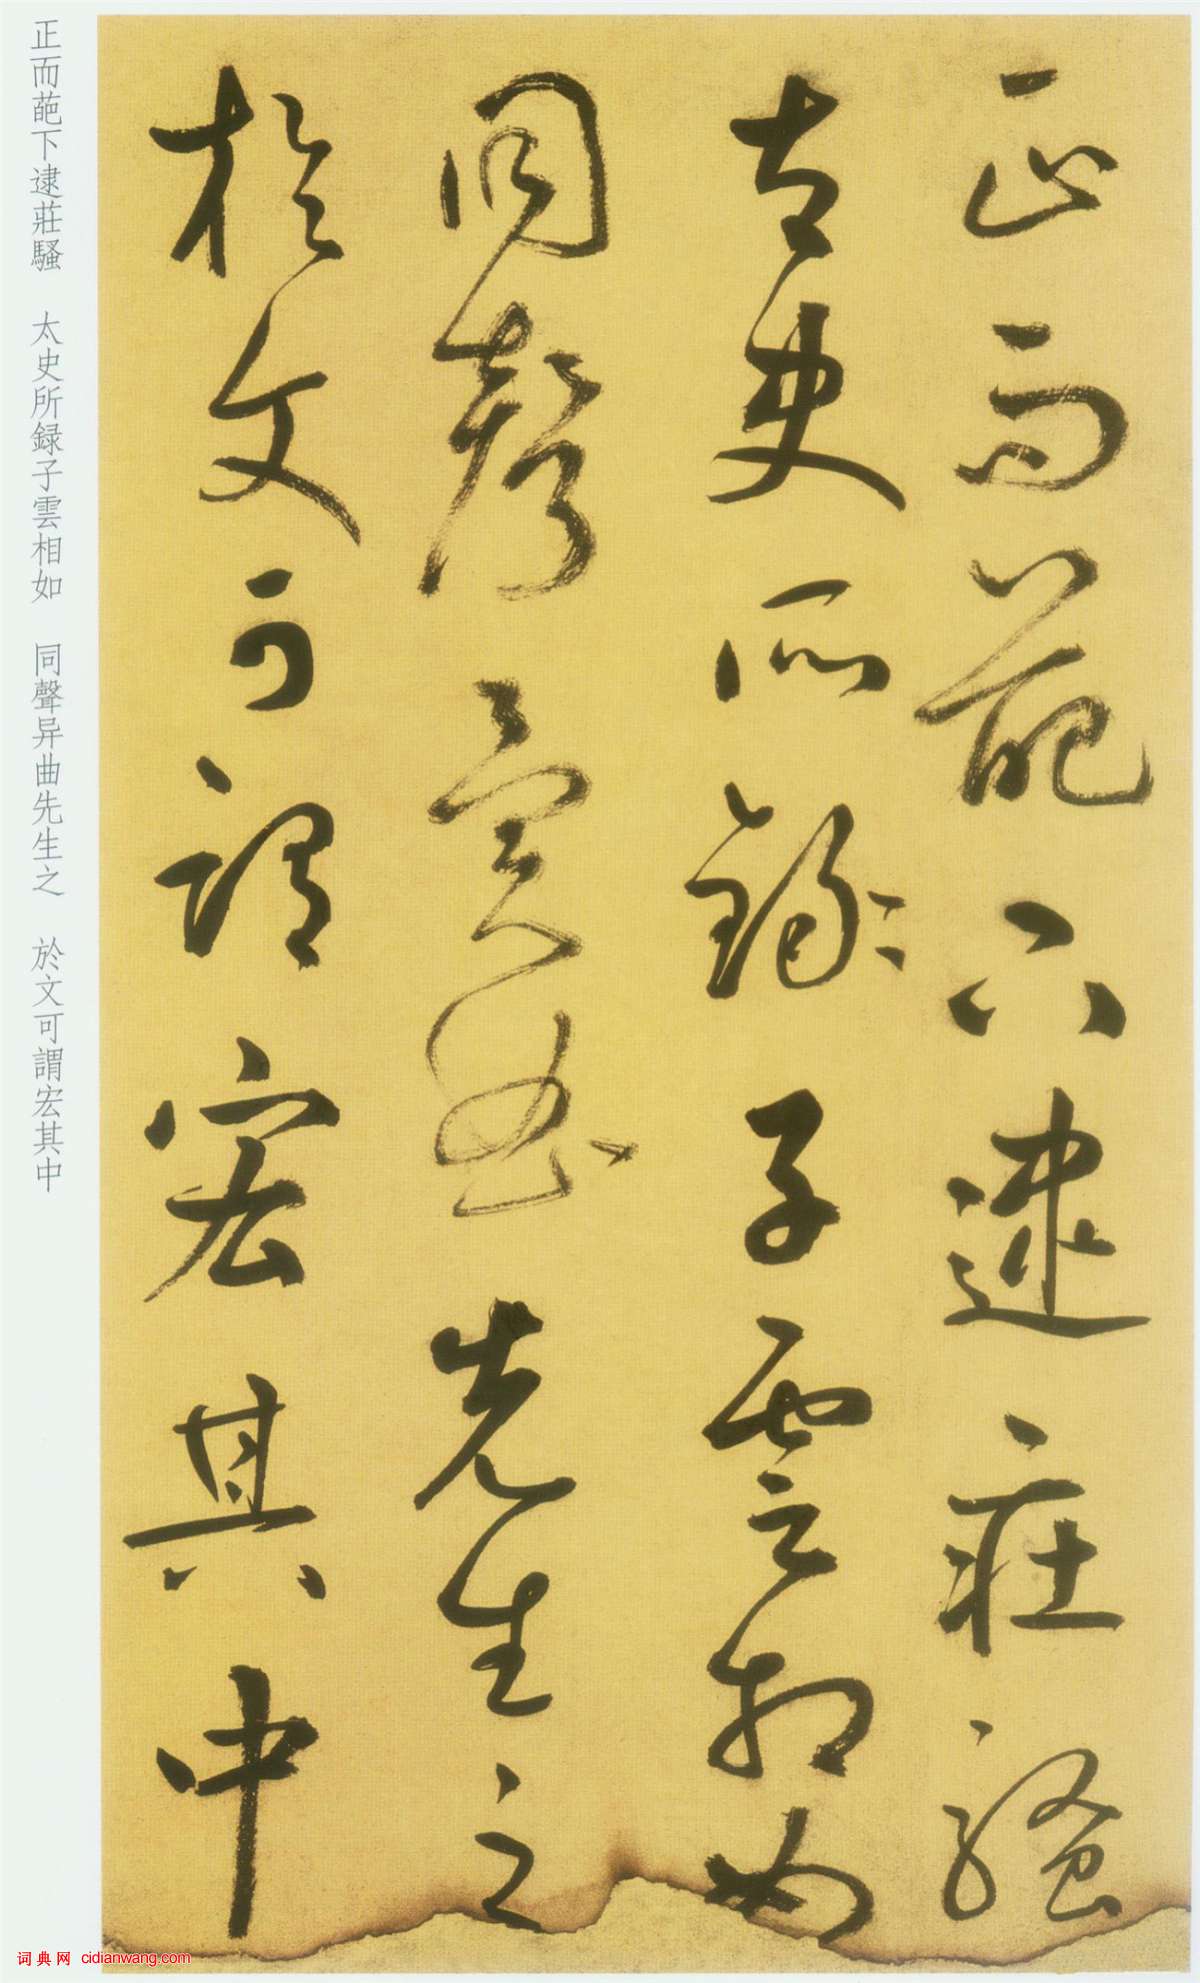 正而葩下逮莊騷
太史所録子雲相如
同聲异曲先生之
於文可謂宏其中
正而葩下逮莊騷　太史所録子雲相如　同聲异曲先生之　於文可謂宏其中
词典网 cidianwang.com